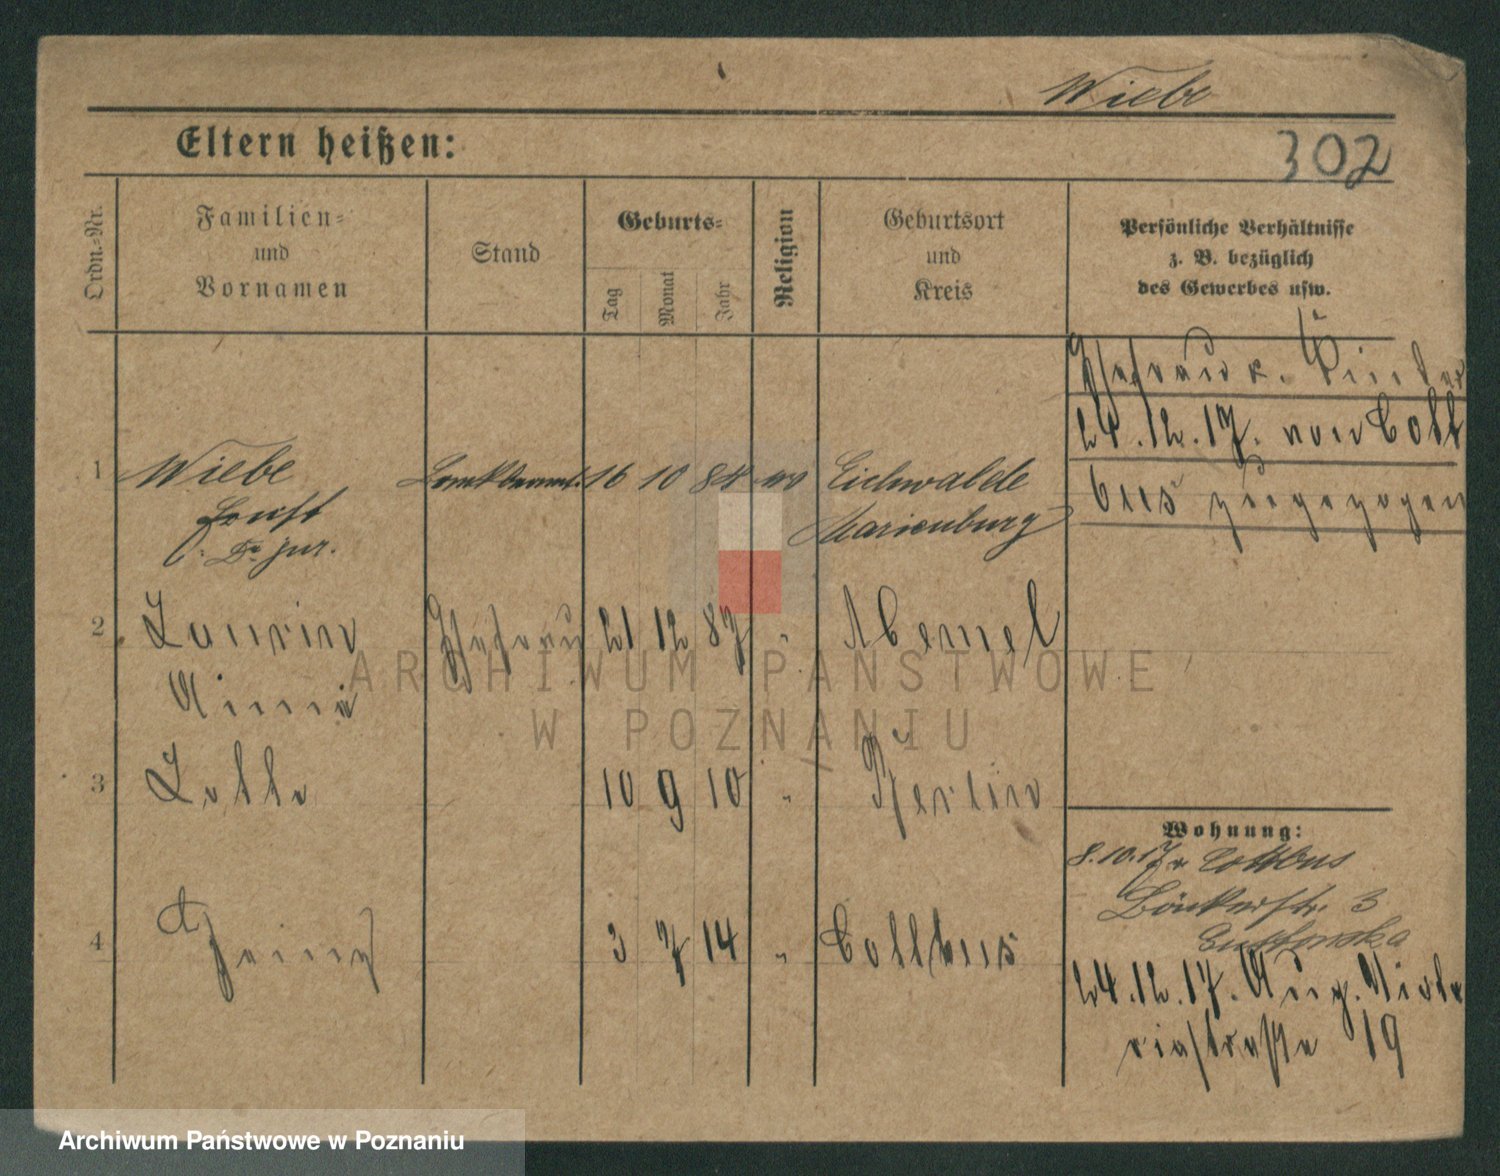 Wiebe
Eltern heißen:
302
Ordn.-Nr.
Familien-
und
Vornamen
Stand
Geburts-
Tag
Monat
Jahr
Religion
Geburtsort
und
Kreis
Persönliche Verhältnisse
z. B. bezüglich
des Gewerbes usw.
Ehefrau u. Kinder
24.12.17. von Cott
bus zugezogen
1 Wiebe 16 10 84 Eichwalde
Ernst Marienburg
Dr jur.
2 Laurin Ehefrau 21 12 87 " Memel
Anna
3 Lotte 10 9 10 " Berlin
4 Heinz 3 7 14 " Cottbus
Wohnung:
8.10.17 v Cottbus
3
24.12.17. Aug. Vikto
riastraße 19
ARCHIWUM PAŃSTWOWE
W POZNANIU
Archiwum Państwowe w Poznaniu